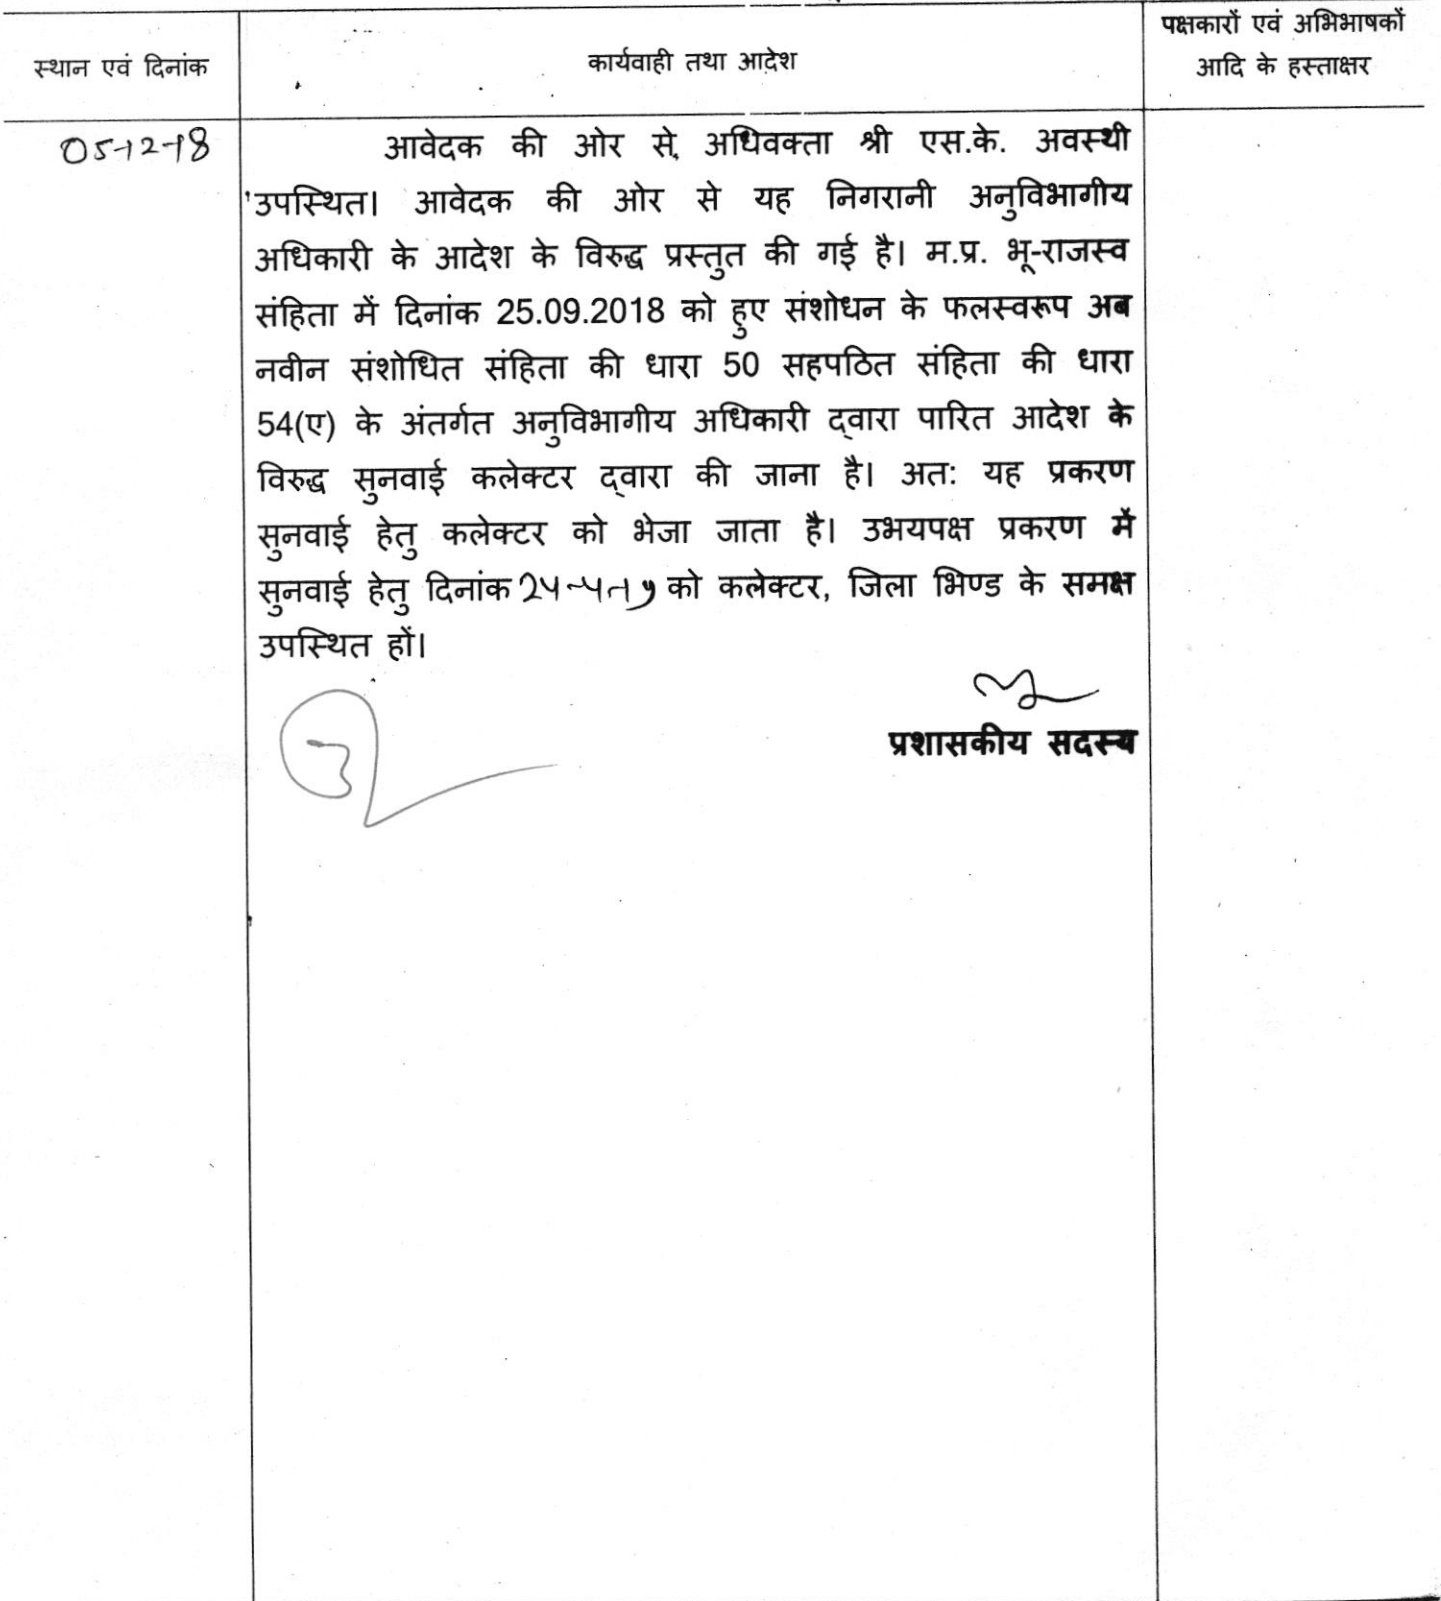 स्थान एवं दिनांक
कार्यवाही तथा आदेश
पक्षकारों एवं अभिभाषकों
आदि के हस्ताक्षर
05-12-18
आवेदक की ओर से, अधिवक्ता श्री एस.के. अवस्थी
उपस्थित। आवेदक की ओर से यह निगरानी अनुविभागीय
अधिकारी के आदेश के विरुद्ध प्रस्तुत की गई है। म.प्र. भू-राजस्व
संहिता में दिनांक 25.09.2018 को हुए संशोधन के फलस्वरूप अब
नवीन संशोधित संहिता की धारा 50 सहपठित संहिता की धारा
54(ए) के अंतर्गत अनुविभागीय अधिकारी द्वारा पारित आदेश के
विरुद्ध सुनवाई कलेक्टर द्वारा की जाना है। अतः यह प्रकरण
सुनवाई हेतु कलेक्टर को भेजा जाता है। उभयपक्ष प्रकरण में
सुनवाई हेतु दिनांक को कलेक्टर, जिला भिण्ड के समक्ष
उपस्थित हों।
प्रशासकीय सदस्य